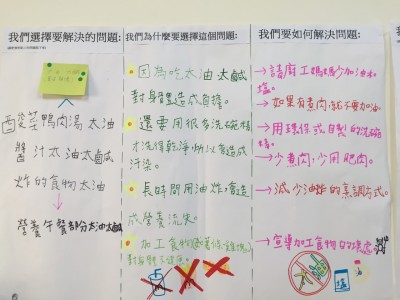 我們選擇要解決的問題:
酸菜鴨肉湯太油
醬汁太油太鹹
炸的食物太油
→營養午餐部分太油太鹹
我們為什麼要選擇這個問題:
因為吃太油太鹹
對身體造成負擔。
還要用很多洗碗精
才洗得乾淨所以會造成
汙染。
長時間用油炸,會造
成營養流失。
加工食物
對身體不健康。
我們要如何解決問題:
→請廚工媽媽少加油和
鹽。
→如果有煮肉,就不要加油。
→用環保或自製的洗碗
精。
→少煮肉,少用肥肉。
→減少油炸的烹調方式。
→宣導加工食物的壞處
鹽